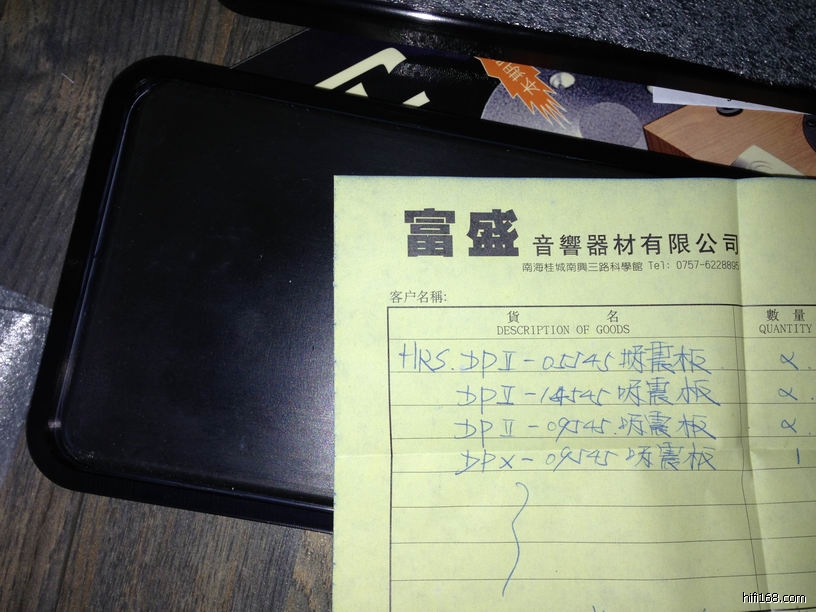 休期
富盛 音響器材有限公司
南海桂城南興三路科學館 Tel: 0757-6228895
客户名稱:
貨 名 數 量
DESCRIPTION OF GOODS QUANTITY
HRS. DPⅡ-05545 坊震板 2.
DPⅡ-14545 坊震板 2.
DPⅡ-09545. 坊震板 2
DPX-09545 坊震板 1
hifi168.com